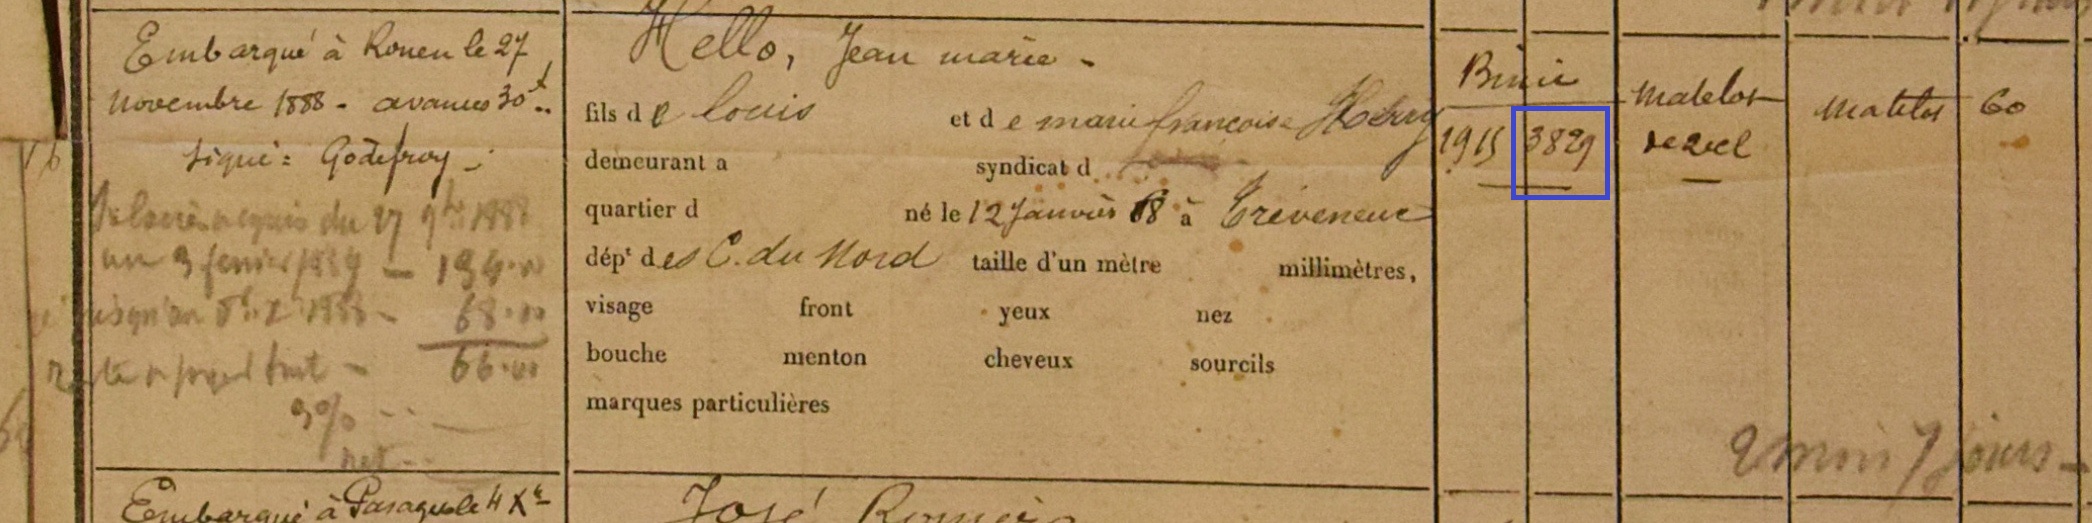 Embarqué à Rouen le 27
novembre 1888 - avances 30f..
signé: Godefroy -
du 27 9bre 1888
un 3 fevrier 1889 - 134.00
jusqu'au 1888 - 68.00
reste a payer fait - 66.00
3% --
net --
Embarqué à Pasages le 4 Xe
Hello, Jean marie -
fils de louis et de marie françoise Henry
demeurant a syndicat d
quartier d né le 12 Janvier 68 à Tréveneuc
dépt des C. du Nord taille d'un mètre millimètres,
visage front yeux nez
bouche menton cheveux sourcils
marques particulières
José Romero
Binic
1915 3829
matelot
de 2e cl
matelot
60
2 mois 7 jours -